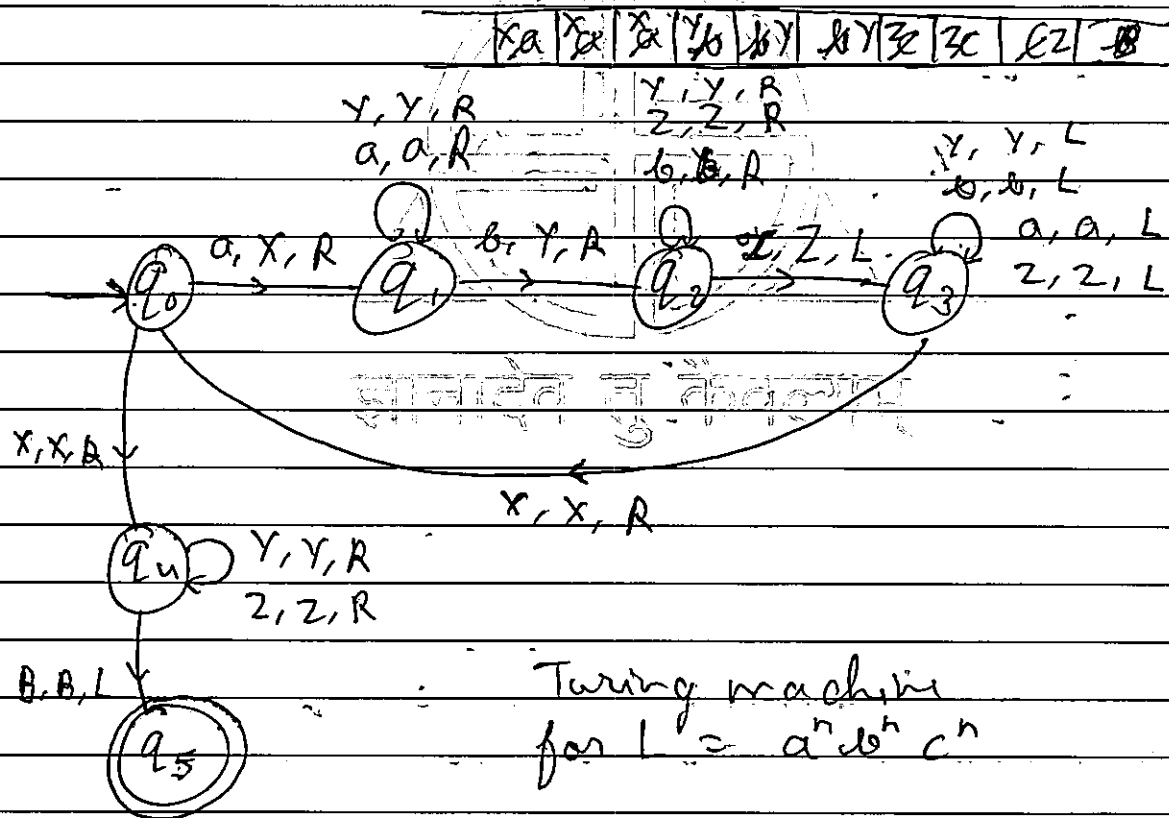 Xa Xa Xa Yb bY bY Zc Zc cZ B
Y, Y, R
a, a, R
Y, Y, R
Z, Z, R
b, b, R
Y, Y, L
b, b, L
a, a, L
Z, Z, L
q0 a, X, R q1 b, Y, R q2 Z, L q3
X, X, R
X, X, R
q4 Y, Y, R
Z, Z, R
B, B, L
q5
Turing machine
for L = aⁿ bⁿ cⁿ